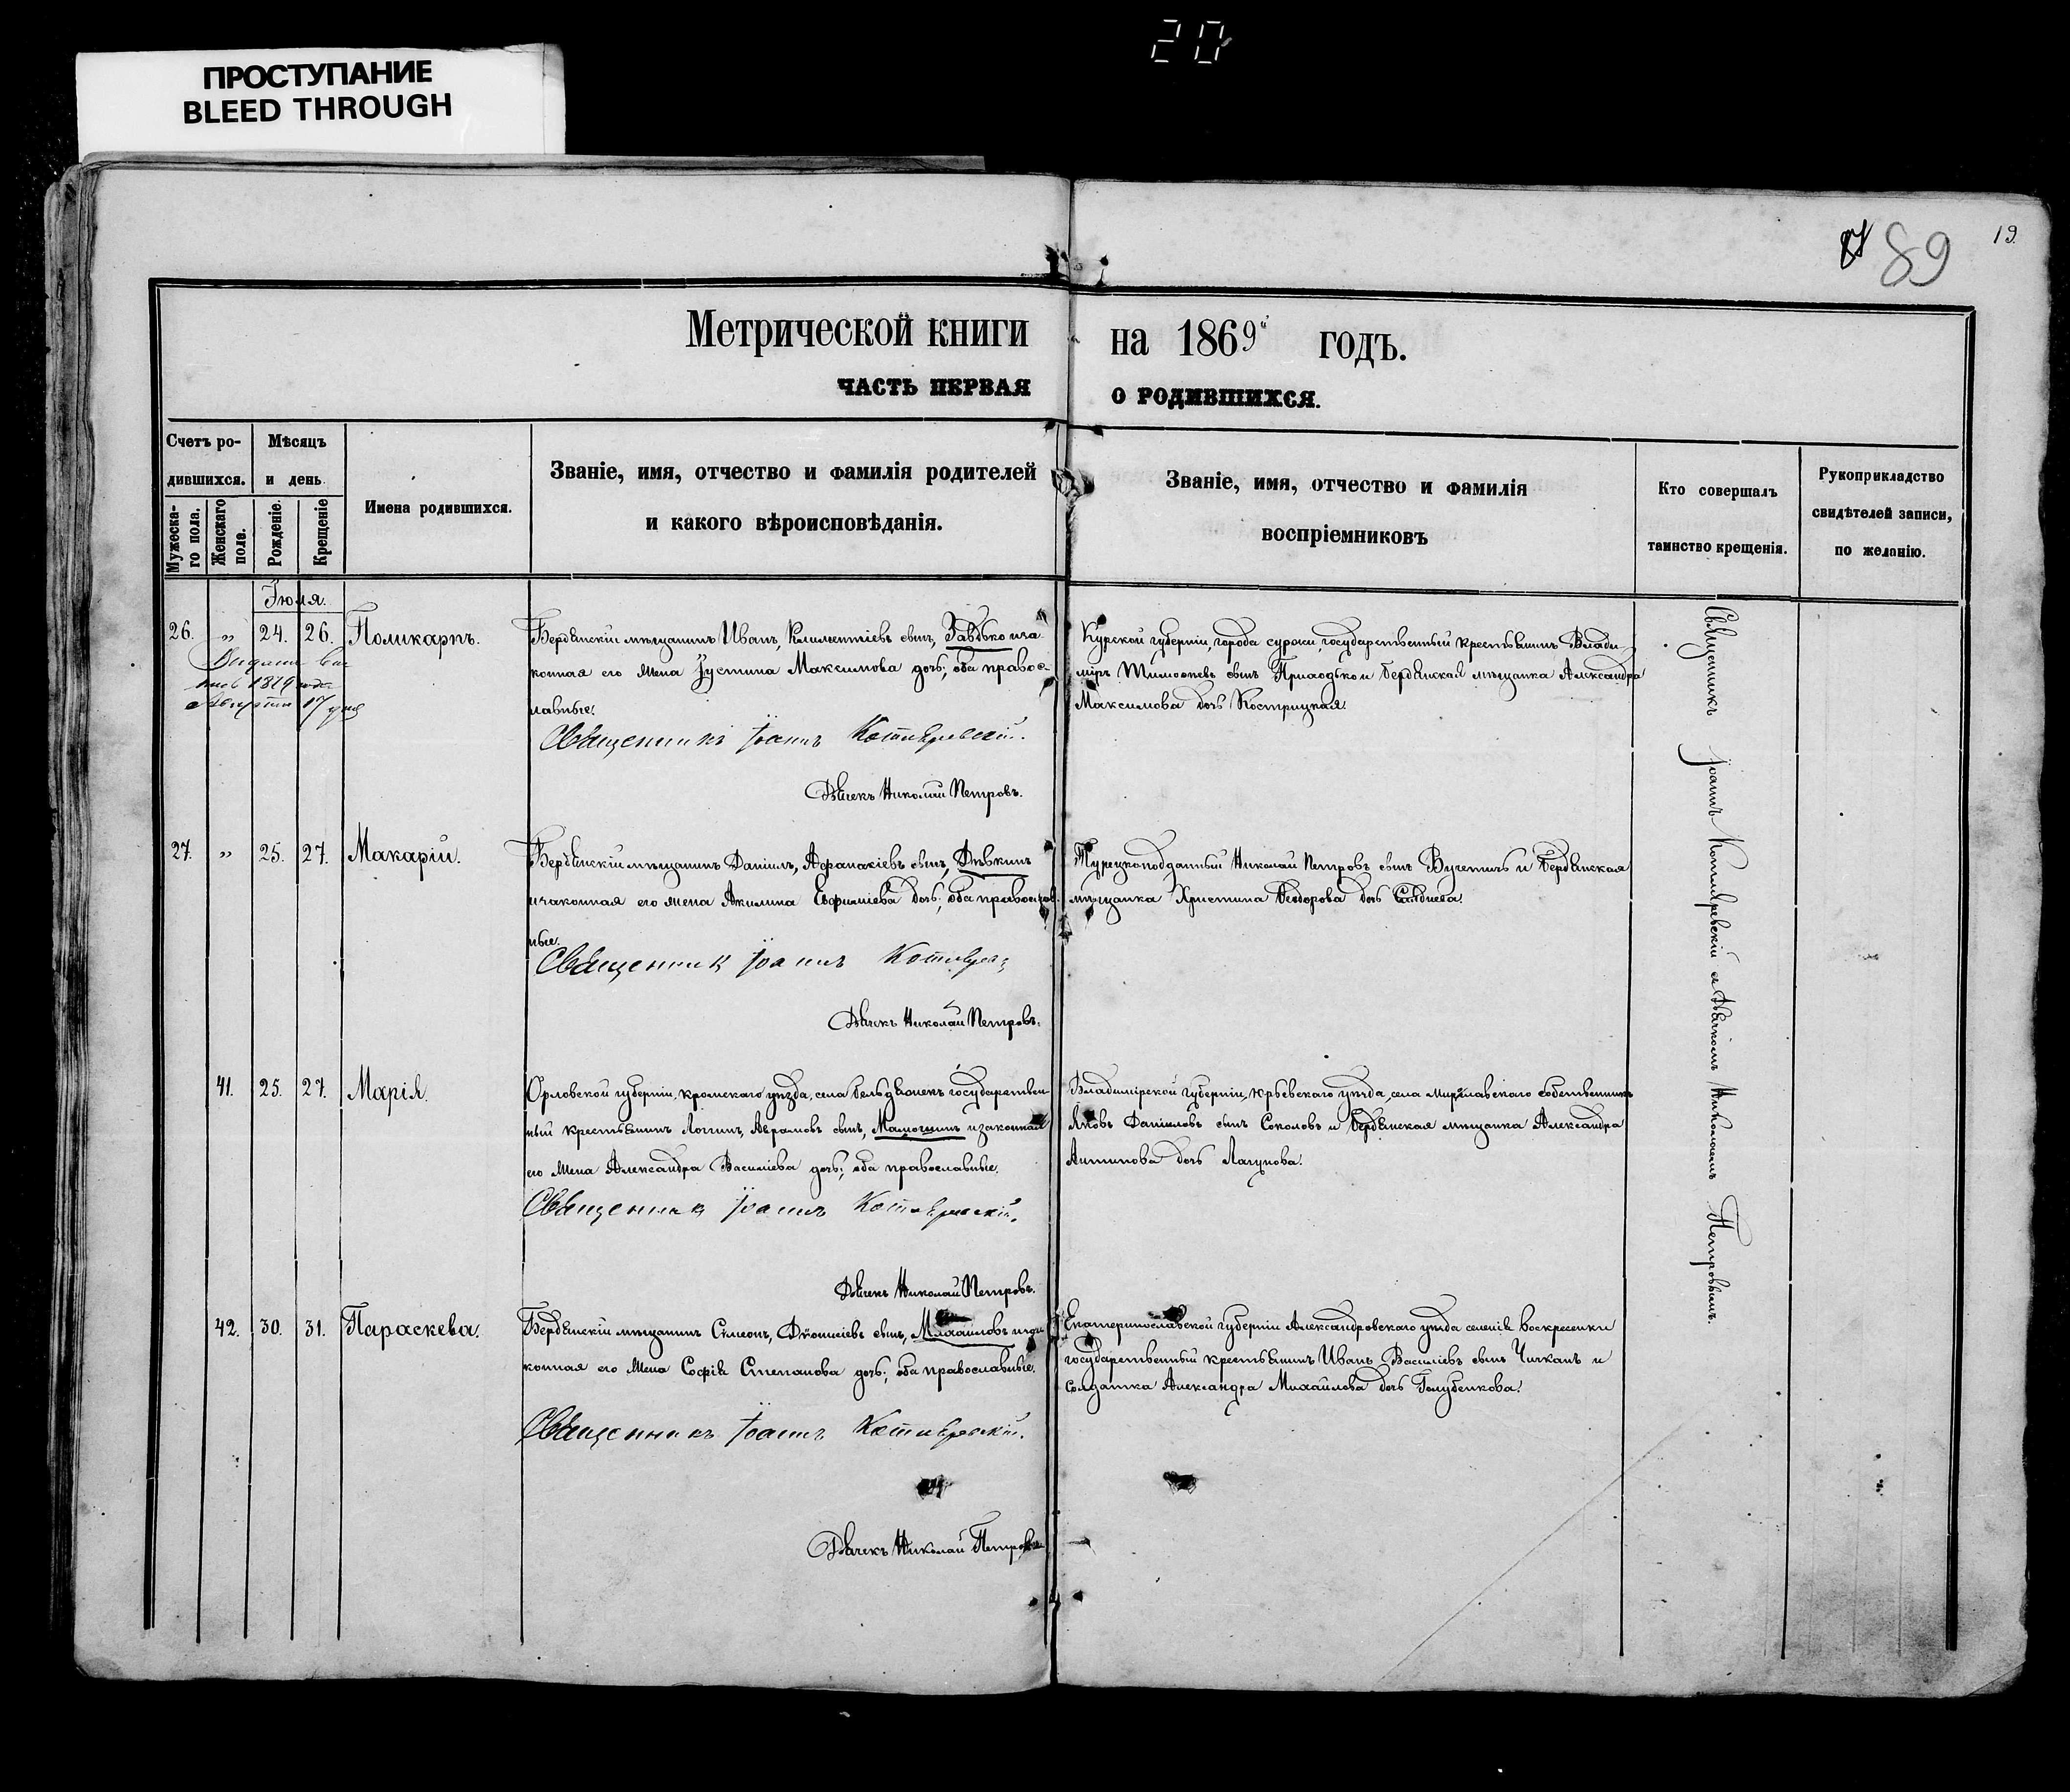 20
ПРОСТУПАНИЕ
BLEED THROUGH
89
19.
Метрической книги на 1869й годъ.
ЧАСТЬ ПЕРВАЯ О РОДИВШИХСЯ.
Счетъ ро-
дившихся.
Мужеска-
го пола.
Женскаго
пола.
Мѣсяцъ
и день
Рожденіе.
Крещеніе
Имена родившихся.
Званіе, имя, отчество и фамилія родителей
и какого вѣроисповѣданія.
Званіе, имя, отчество и фамилія
воспріемниковъ
Кто совершалъ
таинство крещенія.
Рукоприкладство
свидѣтелей записи,
по желанію.
Іюля.
26. „ 24. 26. Поликарпъ.
1879 года
Августа 17 дня
Бердянскій мѣщанинъ Иванъ, Климентіевъ сынъ, Завѣдько и за
конная его жена Іустина Максимова дочь; оба правос-
лавные.
Священникъ Іоаннъ Котляревскій.
Дьячекъ Николай Петровъ.
Курской губерніи, города суржи, государственный крестьянинъ Влади
міръ Тимоѳеевъ сынъ и бердянская мѣщанка Александра
Максимова дочь Кострицкая.
27. „ 25. 27. Макарій.
Бердянскій мѣщанинъ Даніилъ, Афанасіевъ сынъ, Дѣвкинъ
и законная его жена Акилина Евфиміева дочь; оба православ
ные.
Священникъ Іоаннъ
Дьячекъ Николай Петровъ.
Турецкоподданный Николай Петровъ сынъ Вучетичъ и бердянская
мѣщанка Христина Ѳеодорова дочь
41. 25. 27. Марія.
Орловской губерніи, кромскаго уѣзда, села государствен
ный крестьянинъ Логгинъ, Аврамовъ сынъ, Мамошинъ и законная
его жена Александра Василіева дочь; оба православные.
Священникъ Іоаннъ Котляревскій.
Дьячекъ Николай Петровъ.
Владимірской губерніи, Юрьевскаго уѣзда, села собственникъ
Яковъ Даніиловъ сынъ Соколовъ и бердянская мѣщанка Александра
Антипова дочь Лагунова.
42. 30. 31. Параскева.
Бердянскій мѣщанинъ Сімеонъ, Діонисіевъ сынъ, Михайловъ и за
конная его жена Софія Степанова дочь; оба православные.
Священникъ Іоаннъ Котляревскій.
Дьячекъ Николай Петровъ
Екатеринославской губерніи Александровскаго уѣзда селенія воскресенки
государственный крестьянинъ Иванъ Василіевъ сынъ Чичканъ и
солдатка Александра Михайлова дочь Голубенкова.
Священникъ Іоаннъ Котляревскій съ дьячкомъ Николаемъ Петровымъ.